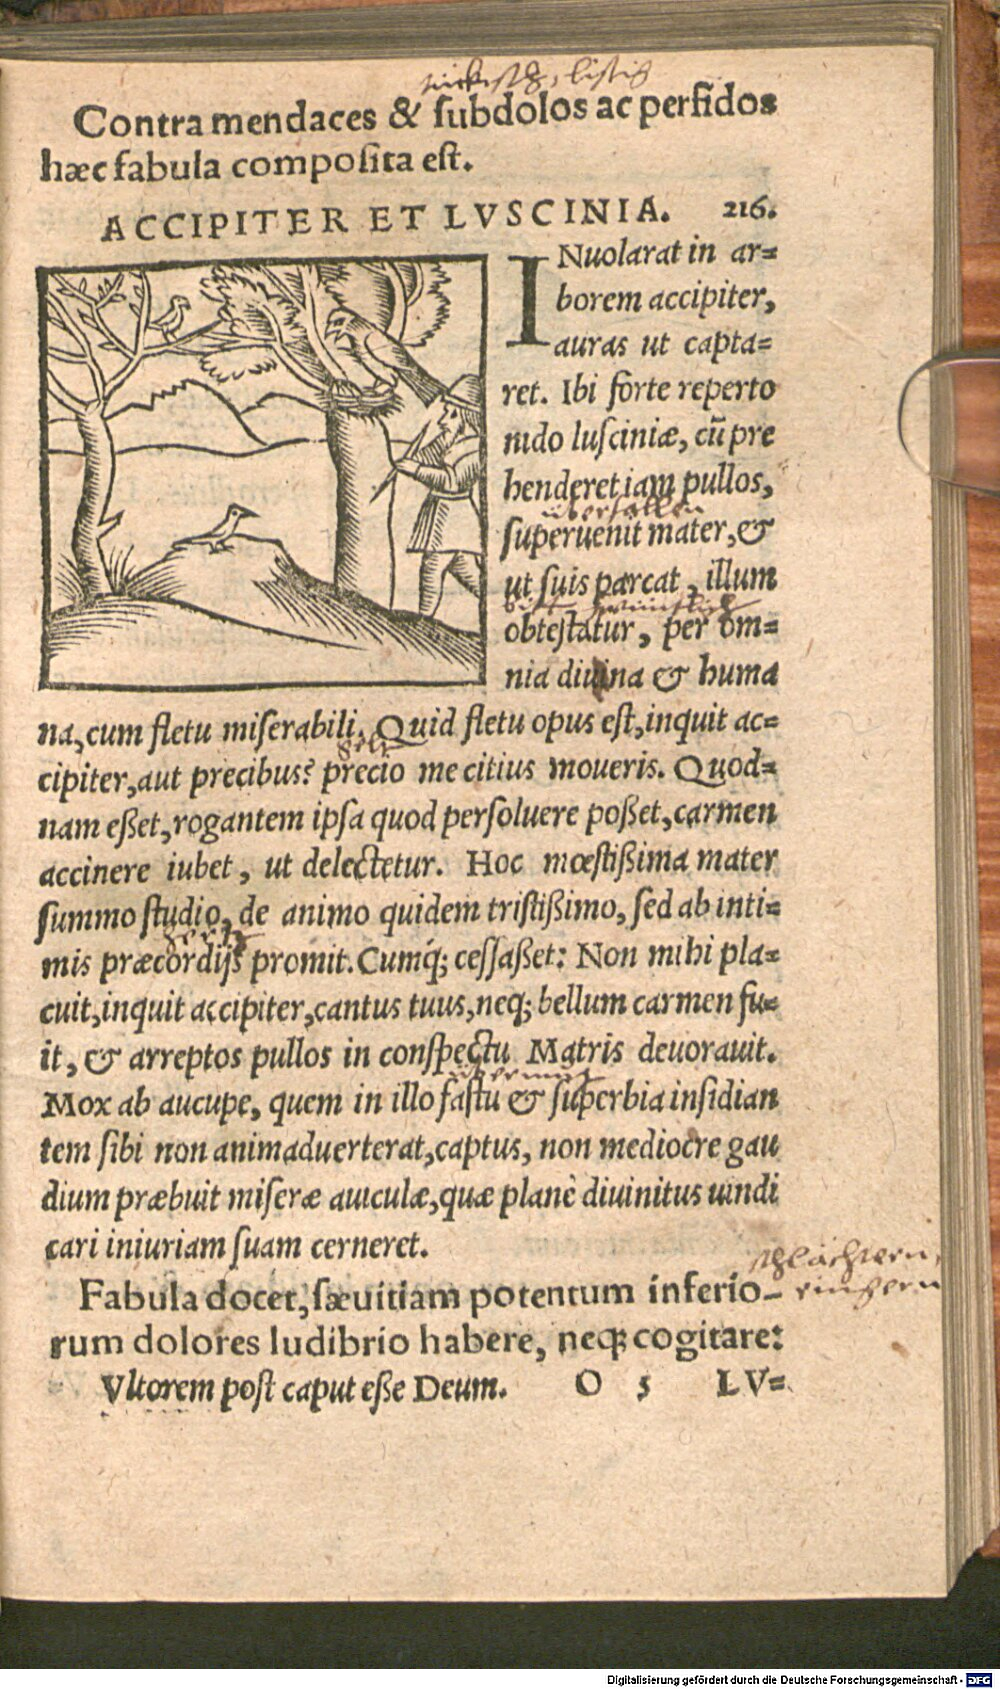 tückisch, listig
Contra mendaces & ſubdolos ac perfidos
hæc fabula compoſita eſt.
ACCIPITER ET LVSCINIA. 216.
INuolarat in ar=
borem accipiter,
auras ut capta=
ret. Ibi forte reperto
nido luſciniæ, cū pre
henderet iam pullos,
überfallen
ſuperuenit mater, &
ut ſuis parcat, illum
obteſtatur, per om=
nia diuina & huma
na, cum fletu miſerabili. Quid fletu opus eſt, inquit ac=
gelt
cipiter, aut precibus? precio me citius moueris. Quod=
nam eßet, rogantem ipſa quod perſoluere poßet, carmen
accinere iubet, ut delectetur. Hoc mœſtißima mater
ſummo ſtudio, de animo quidem triſtißimo, ſed ab inti=
mis præcordijs promit. Cumq́; ceſſaßet: Non mihi pla=
cuit, inquit accipiter, cantus tuus, neq; bellum carmen fu=
it, & arreptos pullos in conſpectu Matris deuorauit.
übermut
Mox ab aucupe, quem in illo faſtu & ſuperbia inſidian
tem ſibi non animaduerterat, captus, non mediocre gau
dium præbuit miſeræ auiculæ, quæ planè diuinitus uindi
cari iniuriam ſuam cerneret.
ſchlächtern,
ringern
Fabula docet, ſæuitiam potentum inferio-
rum dolores ludibrio habere, neq; cogitare:
Vltorem poſt caput eße Deum. O 5 LV=
Digitalisierung gefördert durch die Deutsche Forschungsgemeinschaft - DFG